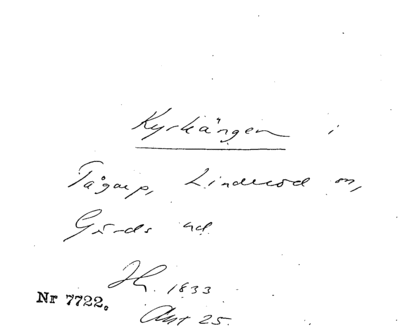 Kyrkängen i
Tågarp, Linderöd sn,
Gärds hd
1833
Nr 7722.
Akt 25.